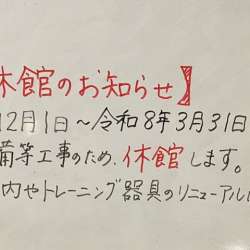 休館のお知らせ】
12月1日～令和8年3月31日
備等工事のため、休館します。
内やトレーニング器具のリニューアル